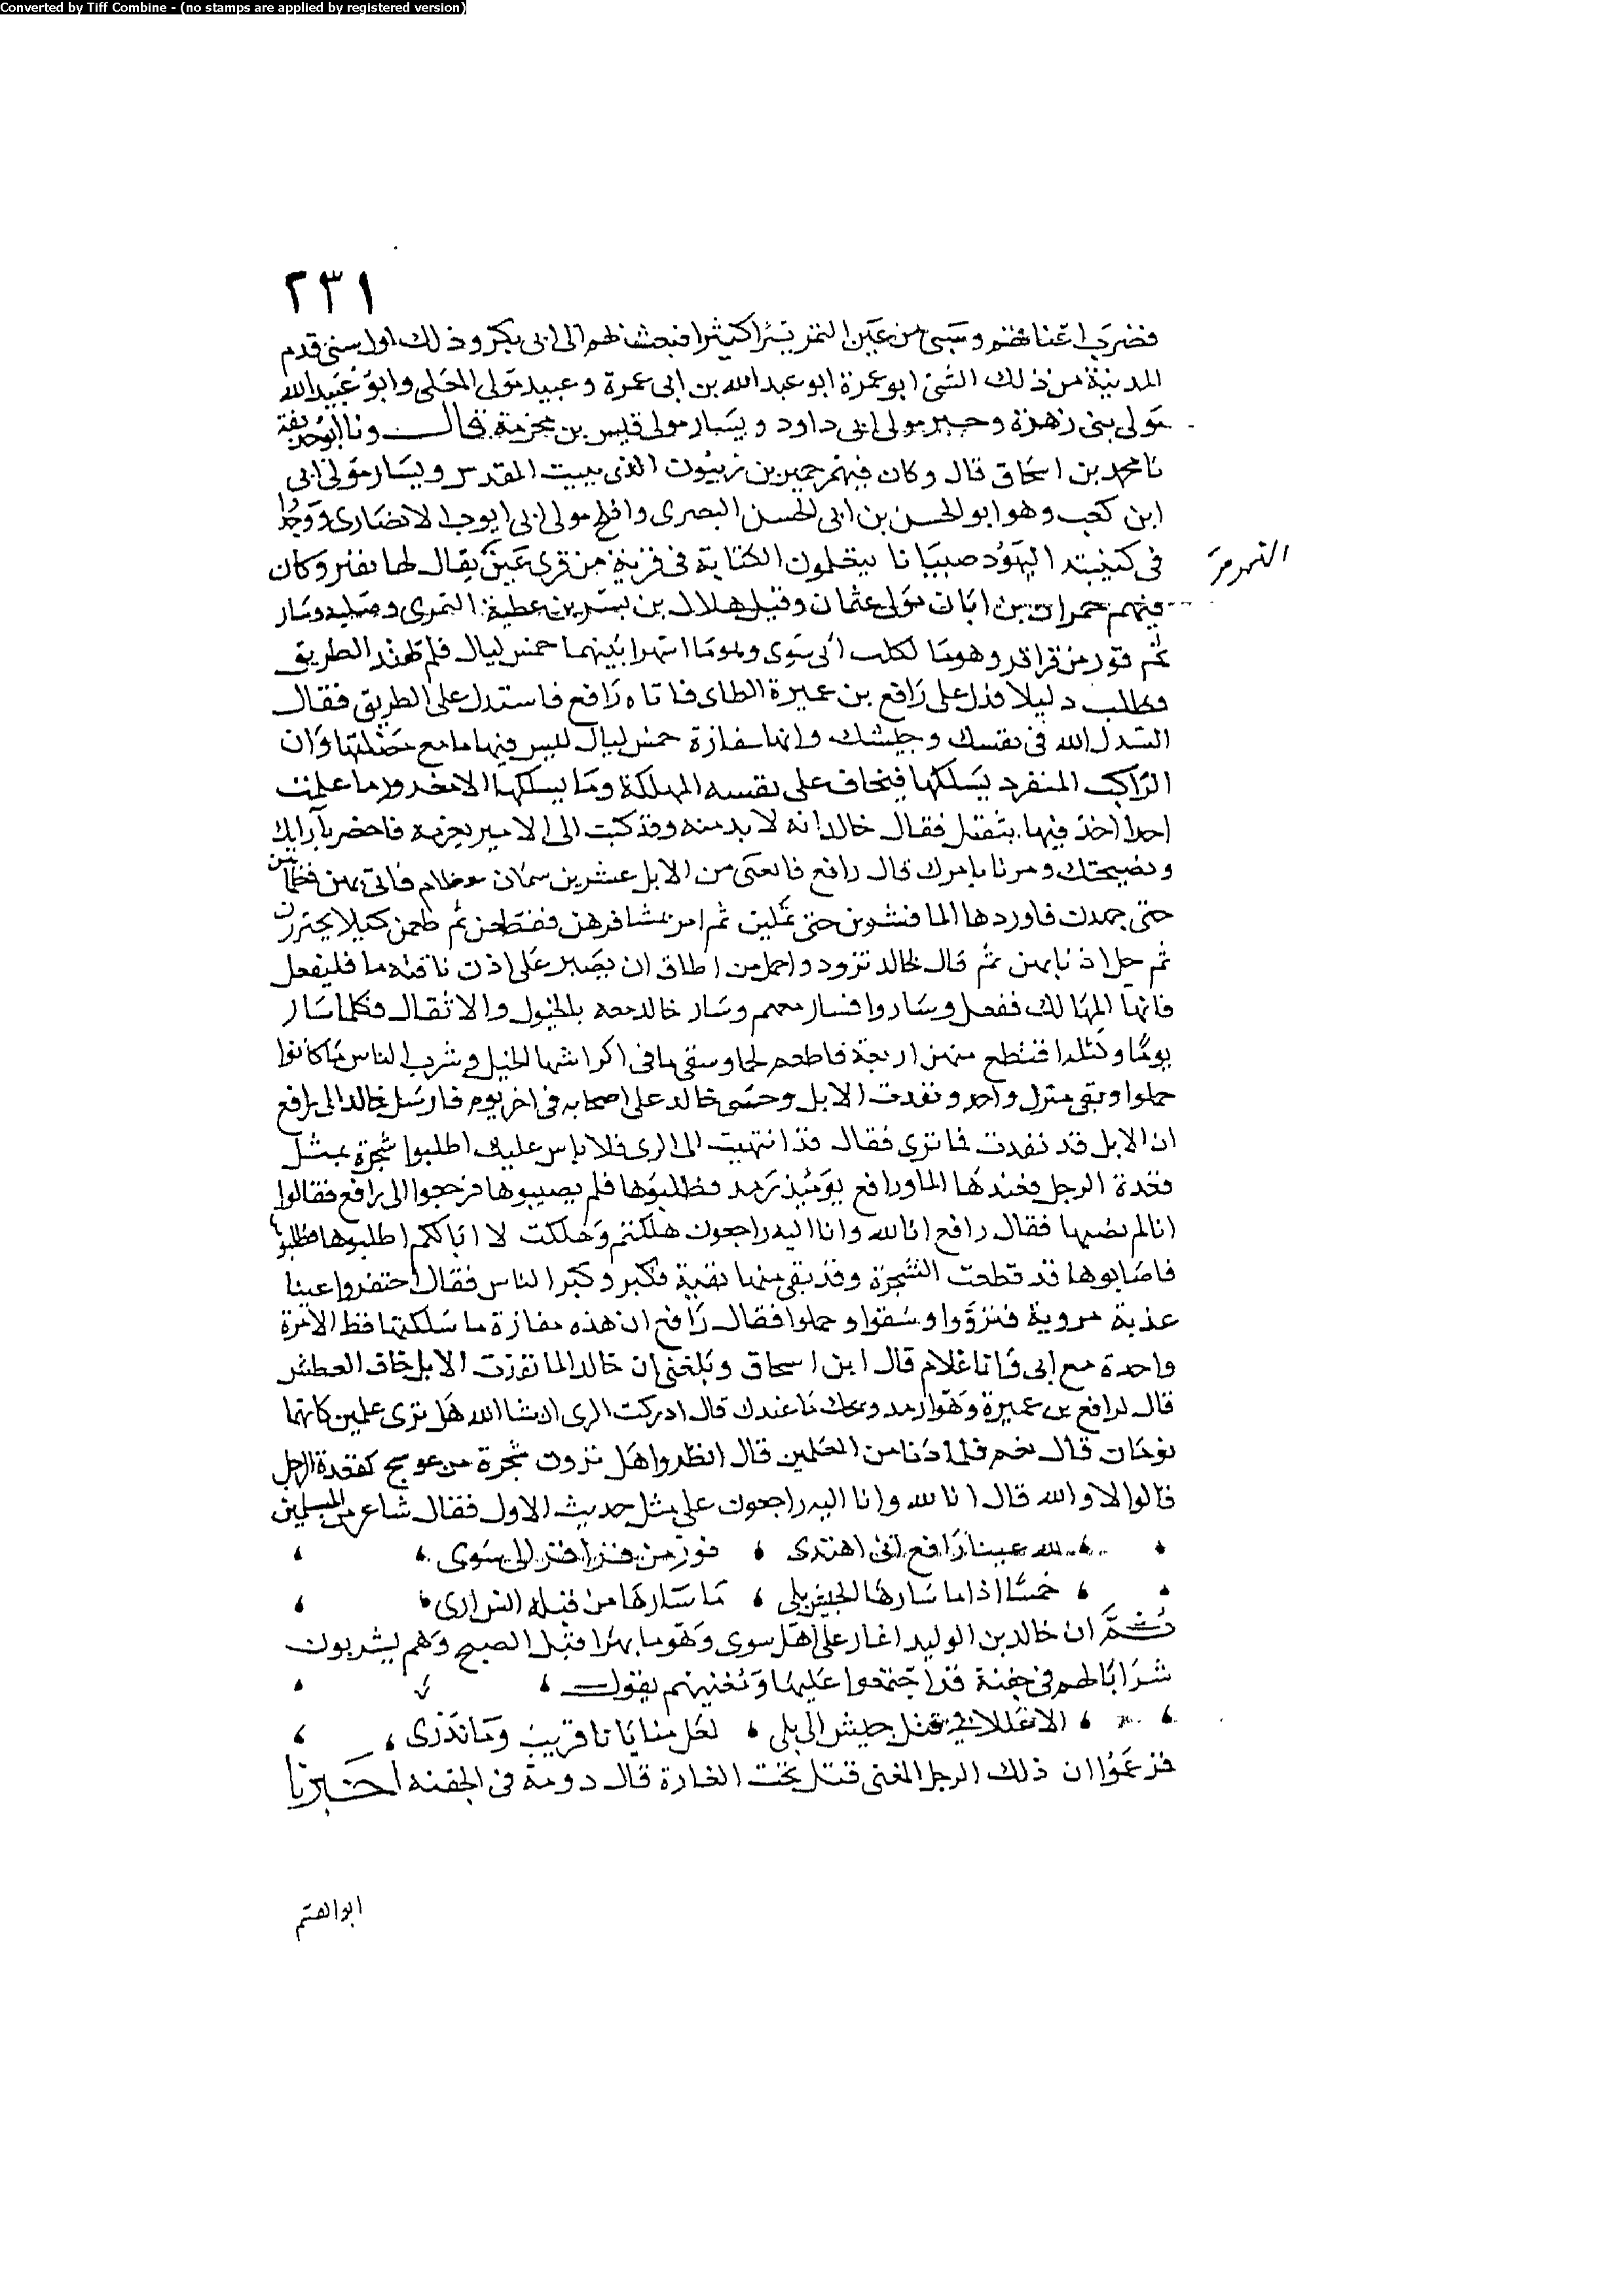 Converted by Tiff Combine - (no stamps are applied by registered version)
٢٣١
فضرب اعناقهم وسبى من عين التمر بشرا كثيرا فبعث بهم الى ابى بكر وذلك اول سبى قدم
المدينة من ذلك السبى ابو عمرة ابو عبد الله بن ابى عمرة وعبيد مولى المعلى وابو عبيد الله
مولى بنى زهرة وجبير مولى ابى داود ويسار مولى قيس بن مخرمة قال ونا ابو حذيفة
نا محمد بن اسحاق قال وكان فيهم حمين بن زيتون الذى ببيت المقدس ويسار مولى ابى
ابن كعب وهو ابو الحسن بن ابى الحسن البصرى وافلح مولى ابى ايوب الانصارى ووجدوا
فى كنيسة اليهود صبيانا يتعلمون الكتابة فى قرية من قرى عين يقال لها نفنر وكان
التمر مر
فيهم حمران بن ابان مولى عثمان وقتل هلال بن بشر بن عطية النمرى وصلبه وسار
ثم فوز من قراقر وهو ما لكلب الى سوى وهو ما لبهرا بينهما خمس ليال فلم يهتد الطريق
وطلب دليلا فدل على رافع بن عميرة الطاى فاتاه رافع فاستدل على الطريق فقال
انشدك الله فى نفسك وجيشك وانها مفازة خمس ليال ليس فيها ما مع مضلتها وان
الراكب المنفرد يسلكها فيخاف على نفسه الهلكة وما يسلكها الا مغرور ما علمت
احدا اخذ فيها بثقل فقال خالد انه لا بد منه وقد كتب الى الامير بعزمه فاحضر بارايك
ونصيحتك ومرنا بامرك قال رافع فابعنى من الابل عشرين سمان عظام فاتى بهن فظماهن
حتى جهدت فاوردها الما فشوبن حتى تملين ثم امر بمشافرهن فقطعن ثم طعمن كيلا يجتررن
ثم حل اذنابهن ثم قال لخالد تزود واحمل من اطاق ان يصبر على اذن ناقته ما فليفعل
فانها المهالك ففعل وساروا فسار معهم وسار خالد معه بالخيول والاثقال فكلما سار
يوما وليلة اقتطع منهن اربعة فاطعم لحما وسقى ما فى اكراشها الخيل وشرب الناس مما كانوا
حملوا وبقى منزل واحد ونفدت الابل وخشى خالد على اصحابه فى اخر يوم فارسل خالد الى رافع
ان الابل قد نفدت فما ترى فقال قد انتهيت الى الرى فلا باس عليك اطلبوا شجرة بمثل
قعدة الرجل فعندها الما ورافع يومئذ رمد فطلبوها فلم يصيبوها فرجعوا الى رافع فقالوا
انا لم نصبها فقال رافع انا لله وانا اليه راجعون هلكتم وهلكت لا ابا لكم اطلبوها فطلبوا
فاصابوها قد قطعت الشجرة وقد بقى منها بقية فكبر وكبر الناس فقال احتفروا عينا
عذبة مروية فتزؤوا وسقوا وحملوا فقال رافع ان هذه مفازة ما سلكتها قط الا مرة
واحدة مع ابى وانا غلام قال ابن اسحاق وبلغنى ان خالد الما نفذت الابل خاف العطش
قال لرافع بن عميرة وهو ارمد ويحك ما عندك قال ادركت الرى ان شا الله هل ترى علمين كانهما
قال نعم فلما دنا من العلمين قال انظروا هل ترون شجرة من عوسج كقعدة الرجل
قالوا لا والله قال انا لله وانا اليه راجعون على مثل حديث الاول فقال شاعر من المسلمين
لله عينا رافع انى اهتدى ، فوز من قراقر الى سوى
خمسا اذا ما سارها الجيش بكى ، ما سارها من قبله انس ارى
ثم ان خالد بن الوليد اغار على اهل سوى وهو ما بهرا قبل الصبح وهم يشربون
شرابا لهم فى جفنة قد اجتمعوا عليها ومغنيهم يقول
الا عللانى قبل جيش ابى بكر ، لعل منايانا قريب وما ندرى
فزعموا ان ذلك الرجل المغنى قتل تحت الغارة قال دومة فى الجفنه اخبرنا
ابو القسم